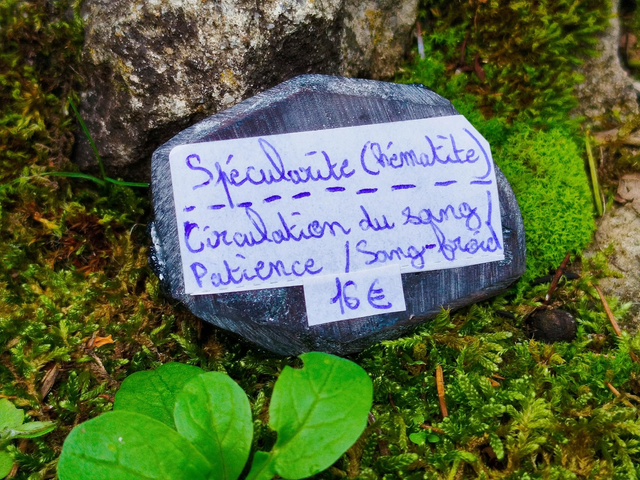 Spécularite (hématite)
Circulation du sang/
Patience / Sang-froid
16 €